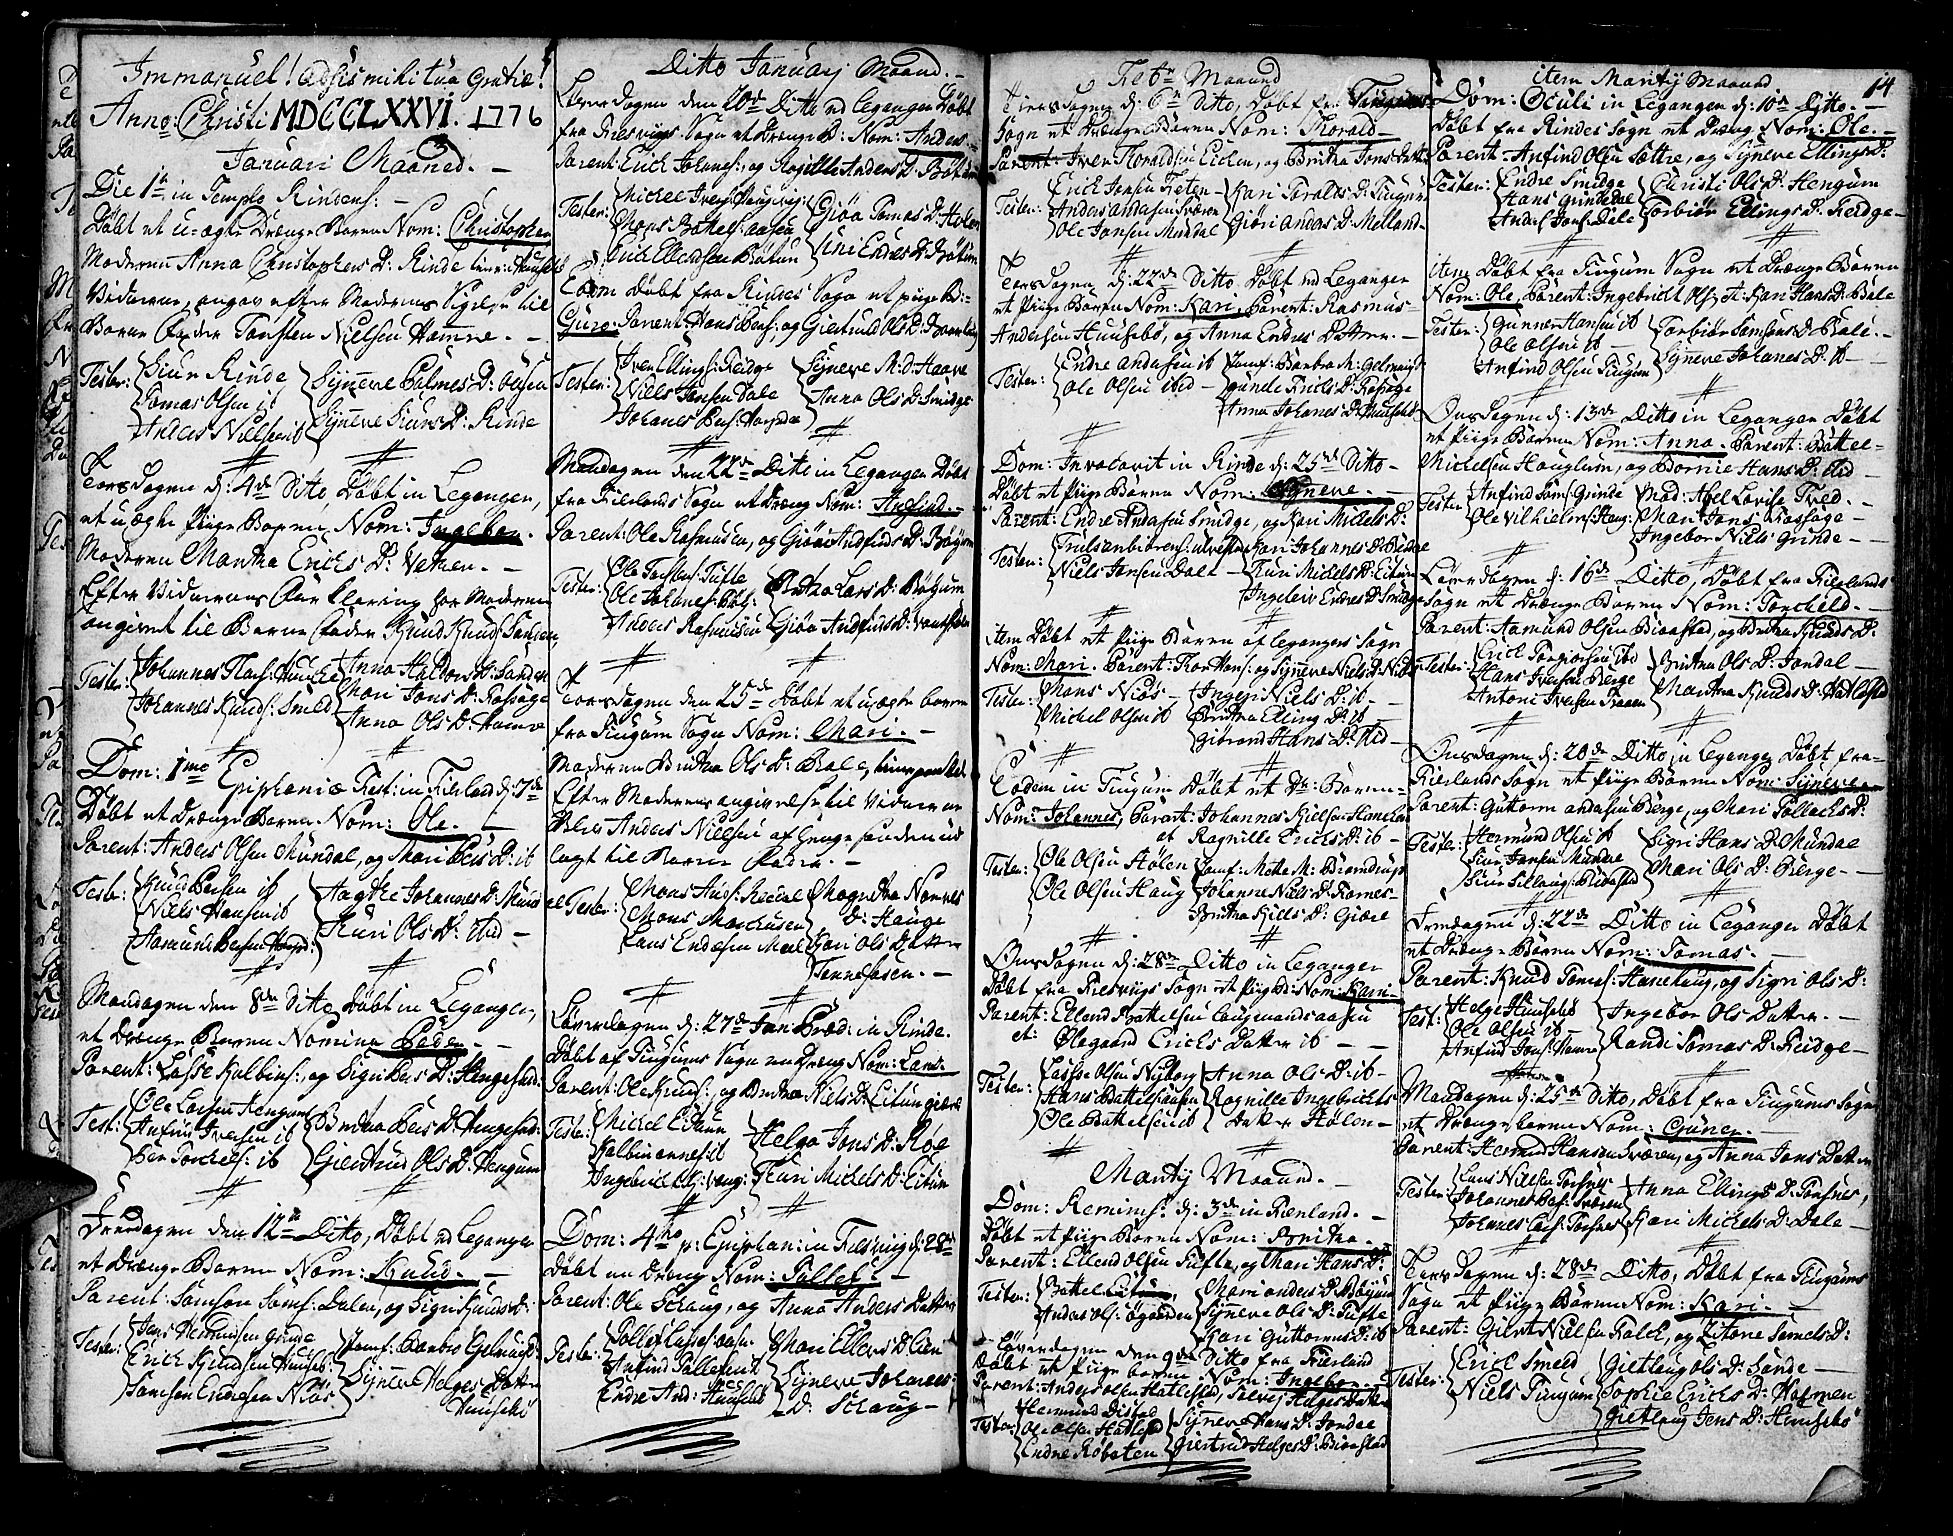 Immanuel! adsis mihi tua Gratiæ!
Anno: Christi MDCCLXXVI. 1776
Januari Maaned. -
Die 1te in Templo Rindens: -
Døbt et u-ægte Drænge Barn Nom: Christopher
Moderen Anna Christophers D: Rinde
Viduerne, angav efter Moderens Sigelse til
Barne Fader Torsten Nielsen Hamre. -
Tester: Siur Rinde
Tomas Olsen ib
Anders Nielsen ib
Synneve Palmes D: Olsen
Synneve Siurs D: Rinde
Torsdagen d: 4de Ditto, Døbt in Leganger,
et uægte Piige Barn Nom: Ingebor. -
Moderen Martha Ericks D: -
Efter Viduernes for Moderen
angivet til Barne Fader Knud Knuds:
Tester: Johannes
Johannes Knuds: Smed
Anna Haldors D: Sanden
Mari Jons D: Røssage
Anna Ols D: Hamre
Dom: 1mo Epiphaniæ Fest: in Fierland d: 7de
Døbt et Drænge Barn Nom: Ole. -
Parent: Anders Olsen Mundal, og Mari Pers D: ib
Tester: Knud Persen ib
Niels Hansen ib
Aamund Persen
Aagthe Johannes D: Mund
Kari Ols D: ibid -
Mandagen den 8de Ditto Døbt in Leganger,
et Drænge Barn Nomine Peder. -
Parent: Lasse Kolbins:, og Signi Pers D: Hengesad:
Test: Ole Larsen Hengum
Anfind Iversen ib
Per Torckels: ib
Britha Pers D: Hengesad:
Giertrud Ols D: Hengum
Freedagen den 12te Ditto, Døbt ved Leganger
et Drænge Barn Nom: Knud. -
Parent: Samson Soms: Dalen, og Sigri Knuds D:
Tester: Jens Hermunsen Grinde
Erick Knudsen Huuseb:
Samson Endresen Niøs
Jomf: Barbro Gelmuyd:
Synneve Helges Datter
Huusebø
Ditto Januarj Maaned. -
Løverdagen den 20de Ditto ved Leganger Døbt
fra Fresvigs Sogn et Drænge B: Nom: Anders -
Parent: Erick Johanes: og Rognille Anders D: Bøtun
Tester: Michel Ivers:
Mons Bottels: aasen
Erick Ellendsen Bøtun
Giøa Tomas D: Holen
Sini Endres D: Bøtun
Eodem Døbt fra Rindes Sogn et piige B:
Guro. Parent: Hans Pers:, og Giertrud Ols D:
Tester: Iver Ellings: Reidge
Niels Jensen Dale
Johanes Pers:
Synneve M: D: Haave
Anna Ols D: Smidge
Mandagen den 22de Ditto in Leganger Døbt
fra Fierlands Sogn et Dreng Nom: Anfind. -
Parent: Ole Rasmusen, og Giøa Andfinds D: Bøyum
Tester: Ole Torstens: Tufte
Ole Johanes: Bøy:
Anders Rasmusen
Britha Lars D: Bøyum
Giøa Andfinds D:
Torsdagen den 25de Døbt et uægte barn
fra Tiugum Sogn Nom: Mari. -
Moderen Britha Ols D: Bale,
Efter Moderens angivelse til Viduerne
blev Anders Nielsen af Henge sanden ud
lagt til Barne Fader. -
Tester: Mons Ands:
Mons Marcusen
Lars Endresen Mæl
Magretha
D: Hauge
Kari Ols Datter
Tennesasen. -
Løverdagen d: 27de Jan: Præd: in Rinde.
Døbt af Tiugums Sogn en Dreng Nom: Lars. -
Parent: Ole Knuds:, og Brithe Niels D: Eitun
Tester: Michel Eitun
Kolbin ib
Ingebrict Ols:
Helga Jons D: Røe
Kari Michels D: Eitun
Dom: 4to p: Epiphan: in Fresvig d: 28de
Døbt en Dreng Nom: Tollef. -
Parent: Ole Schaug, og Anna Anders Datter
Tester: Tollef Lasses: aase
Anfind Tollefsen ib
Endre And: Huusebø
Mari Ellers D: Lien
Synneve Johannes:
D: Schaug -
Febr: Maaned
Tiersdagen d: 6te Ditto, Døbt fra Tiugums
Sogn et Drænge Barn Nom: Thorald -
Parent: Iver Thoraldsen Eichen, og Britha Jons datt:
Tester: Erick Jensen Feten
Anders Andersen Sværen
Ole Jonsen Mundal
Kari Toralds D: Tiugum
Giøri Anders D: Melland
Torsdagen d: 22de Ditto Døbt ved Leganger
et Piige Barn Nom: Kari, Parent: Rasmus
Andersen Huusebø, og Anna Endres Datter. -
Tester: Endre Andersen ib
Ole Olsen ibid -
Jomf: Barbra M: Gelmuyd:
Gunele Truels D: Røssage
Anna Johanes D: Huusebø
Dom: Invocavit in Rinde d: 25de Ditto -
Døbt et Piige Barn Nom: Synneve. -
Parent: Endre Andersen Smidge, og Kari Michels D:
Tester:
Niels Jensen Dale -
Kari Johannes D: Reidge
Kari Michels D: Eitun
Ingeleiv Endres D: Smidge
item Døbt et Piige Barn af Legangers Sogn
Nom: Mari. Parent: Thor Hans: og Synneve Niels D: Niøs
Tester: Mons Niøs -
Michel Olsen ib
Ingeri Niels D: ib -
Britha Elling D: ib -
Gibrand Hans D: ibid -
Eodem in Tiugum Døbt et Dr: Barn -
Nom: Johannes, Parent: Johannes Kielsen
et Ragnille Ericks D: ib -
Tester: Ole Olsen Hølen
Ole Olsen Haug
Jomf: Mette M:
Johanne Niels D:
Britha Kiels D: Giære
Onsdagen d: 28de Ditto in Leganger
Døbt fra Fresvigs Sogn et piige B: Nom: Kari -
Parent: Ellend Bottelsen Laugmandsaasen
et: Ølegaard Ericks Datter ib - -
Tester: Lasse Olsen Nyborg
Hans Bottelsen aasen
Ole Bottelsen ib
Anna Ols D: ib -
Ragnille Ingebricts
Datter Hølen -
Martij Maaned. -
Dom: Reminis: d: 3de in Fierland. -
Døbt et Piige Barn Nom: Britha. -
Parent: Ellend Olsen Tufte, og Mari Hans D:
Tester: Bottel
Anders Ols:
Mari Anders D: Bøyum
Synneve Ols D: Tufte
Kari Guttorms D: ib
- Løverdagen den 9de Ditto fra Fierland
Døbt et Piige Barn Nom: Ingebor.
Parent: Anders Olsen Hatlestad, Selvei Helges Datter
Tester: Hermund Distad
Ole Olsen Hatlestad
Endre Røbaten
Synneve Hans D: Jordal
Giertrud Helges D: Biaastad
item Martij Maaned
14
Dom: Oculi in Leganger d: 10de Ditto. -
Døbt fra Rindes Sogn et Dræng Nom: Ole. -
Parent. Anfind Olsen Sættre, og Synneve Ellings D:
Tester: Endre Smidge
Hans Grindedal
Anders Jons: Dale
Christi Ols D: Hengum
Torbiør Ellings D: Reidge -
item Døbt fra Tiugum Sogn et Drænge Barn
Nom: Ole, Parent: Ingebrict Ols: et Kari Hans D: Bale
Tester: Gunner Hansen ib
Ole Olsen ib -
Anfind Olsen Tiugum
Torbiør Samsens D: Bale. -
Synneve Johanes D: ib -
Onsdagen d: 13de Ditto in Leganger Døbt
et Piige Barn Nom: Anna. Parent: Bottel -
Michelsen Hauglum, og Dorrite Hans D: ibid -
Tester: Anfind Joms: Grinde
Ole Vilhielms: Haug:
Mad: Abel Lovise Tved. -
Mari Jons Røssage -
Ingebor Niels Grinde -
Løverdagen d: 16de Ditto, Døbt fra Fierlands
Sogn et Drænge Barn Nom: Torchild. -
Parent: Aamund Olsen Biaastad, og Britha Knuds D:
Tester: Erick Torgiersen ibid
Hans Iversen Berge
Antoni Iversen
Britha Ols D: Jordal -
Martha Knuds D: Hatlestad
Onsdagen d: 20de Ditto in Leganger Døbt fra -
Fierlands Sogn et Piige Barn Nom: Synneve -
Parent: Guttorm Andersen Berge, og Mari Tollacks D:
Tester: Hermund Olsen ib
Siur Jensen Mundal
Siur Biaastad
Sigri Hans D: Mundal
Mari Ols D: Berge -
Freedagen d: 22de Ditto in Leganger Døbt
et Drænge Barn Nom: Tomas. -
Parent: Knud Tomes: Hanehaug, og Sigri Ols D:
Test: Helge Huusebø
Ole Olsen ib -
Anfind Jons: Hamre
Ingebor Ols Datter. -
Randi Tomas D: Reidge -
Mandagen d: 25de Ditto, Døbt fra Tiugums Sogn
et Drænge barn Nom: Guner. -
Parent: Hermund Hansen Sværen, og Anna Jons Datter
Tester: Lars Nielsen Torsnes
Johannes Pers: Sværen
Johannes Lars: Torsnes
Anna Ellings D: Torsnes,
Kari Michels D: Dale -
Torsdagen d: 28de Ditto, Døbt fra Tiugums
Sogn et Piige Barn Nom: Kari. -
Parent: Giert Nielsen Falck, og Zitone Samels D:
Tester: Erick Smeed
Niels Tiugum
Gietlaug Ols D: Sande -
Sophie Ericks D: Holmen
Gietlaug Jens D: Huusebø